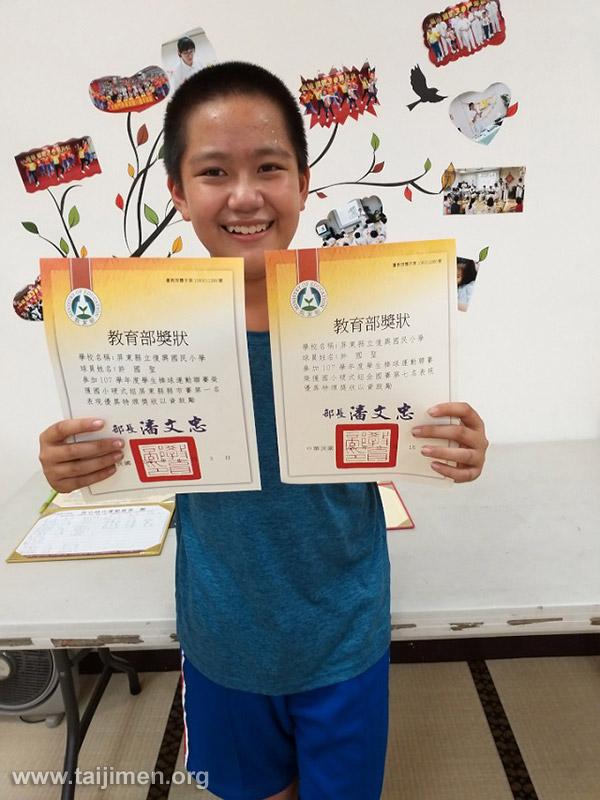 教育部獎狀
學校名稱:屏東縣立復興國民小學
球員姓名:許國聖
參加107學年度學生棒球運動聯賽榮
獲國小硬式組屏東縣縣市賽第一名
表現優異特頒獎狀以資鼓勵
部長潘文忠
教育部獎狀
學校名稱:屏東縣立復興國民小學
球員姓名:許國聖
參加107學年度學生棒球運動聯賽
榮獲國小硬式組全國賽第七名表現
優異特頒獎狀以資鼓勵
部長潘文忠
中華民國
www.taijimen.org